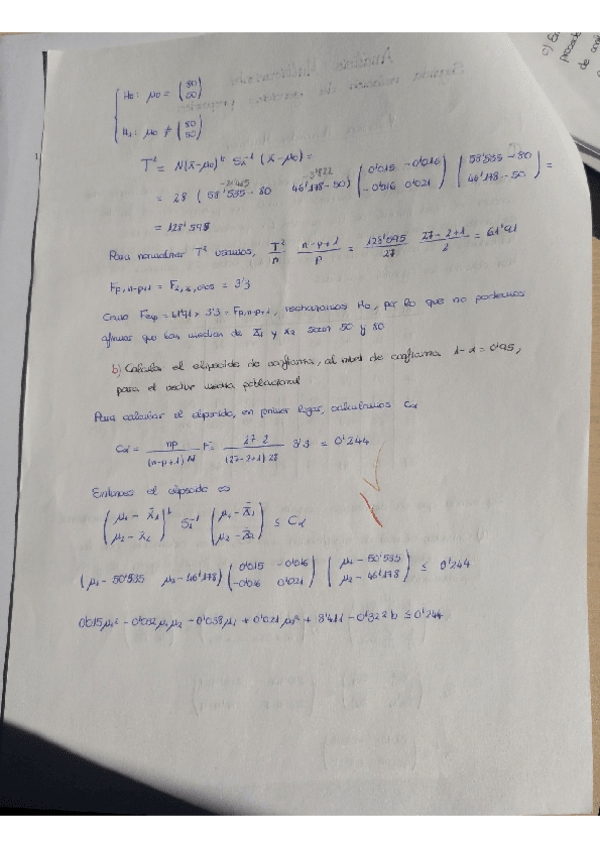 H₀: μ₀ = (80 50)
H₁: μ₀ ≠ (80 50)
T² = N(x̄-μ₀)ᵗ Sₓ⁻¹ (x̄-μ₀) =
= 28 (58'535 - 80  46'178 - 50) (0'015 -0'016 -0'016 0'021) (58'535 - 80 46'178 - 50) =
= 128'595
Para normalizar T² usamos, T²/n n-p+1/p = 128'595/27 27-2+1/2 = 61'91
Fp,n-p+1 = F2,26,0.05 = 3'3
Como Fexp = 61'91 > 3'3 = Fp,n-p+1, rechazamos H₀, por lo que no podemos
afirmar que las medias de X₁ y X₂ sean 50 y 80
b) Calcula el elipsoide de confianza, al nivel de confianza 1-α = 0'95,
para el vector media poblacional
Para calcular el elipsoide, en primer lugar, calculamos Cα
Cα = np/(n-p+1)N F = 27·2/(27-2+1)28 3'3 = 0'244
Entonces el elipsoide es
(μ₁ - x̄₁ μ₂ - x̄₂)ᵗ Sₓ⁻¹ (μ₁ - x̄₁ μ₂ - x̄₂) ≤ Cα
(μ₁ - 50'535  μ₂ - 46'178) (0'015 -0'016 -0'016 0'021) (μ₁ - 50'535 μ₂ - 46'178) ≤ 0'244
0'015μ₁² - 0'032μ₁μ₂ - 0'038μ₁ + 0'021μ₂² + 8'411 - 0'322 b ≤ 0'244